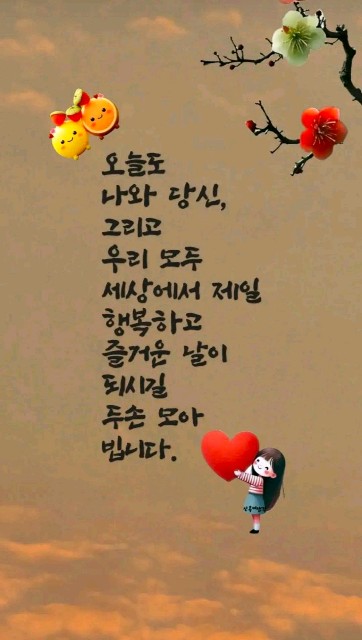 오늘도
나와 당신,
그리고
우리 모두
세상에서 제일
행복하고
즐거운 날이
되시길
두손 모아
빕니다.